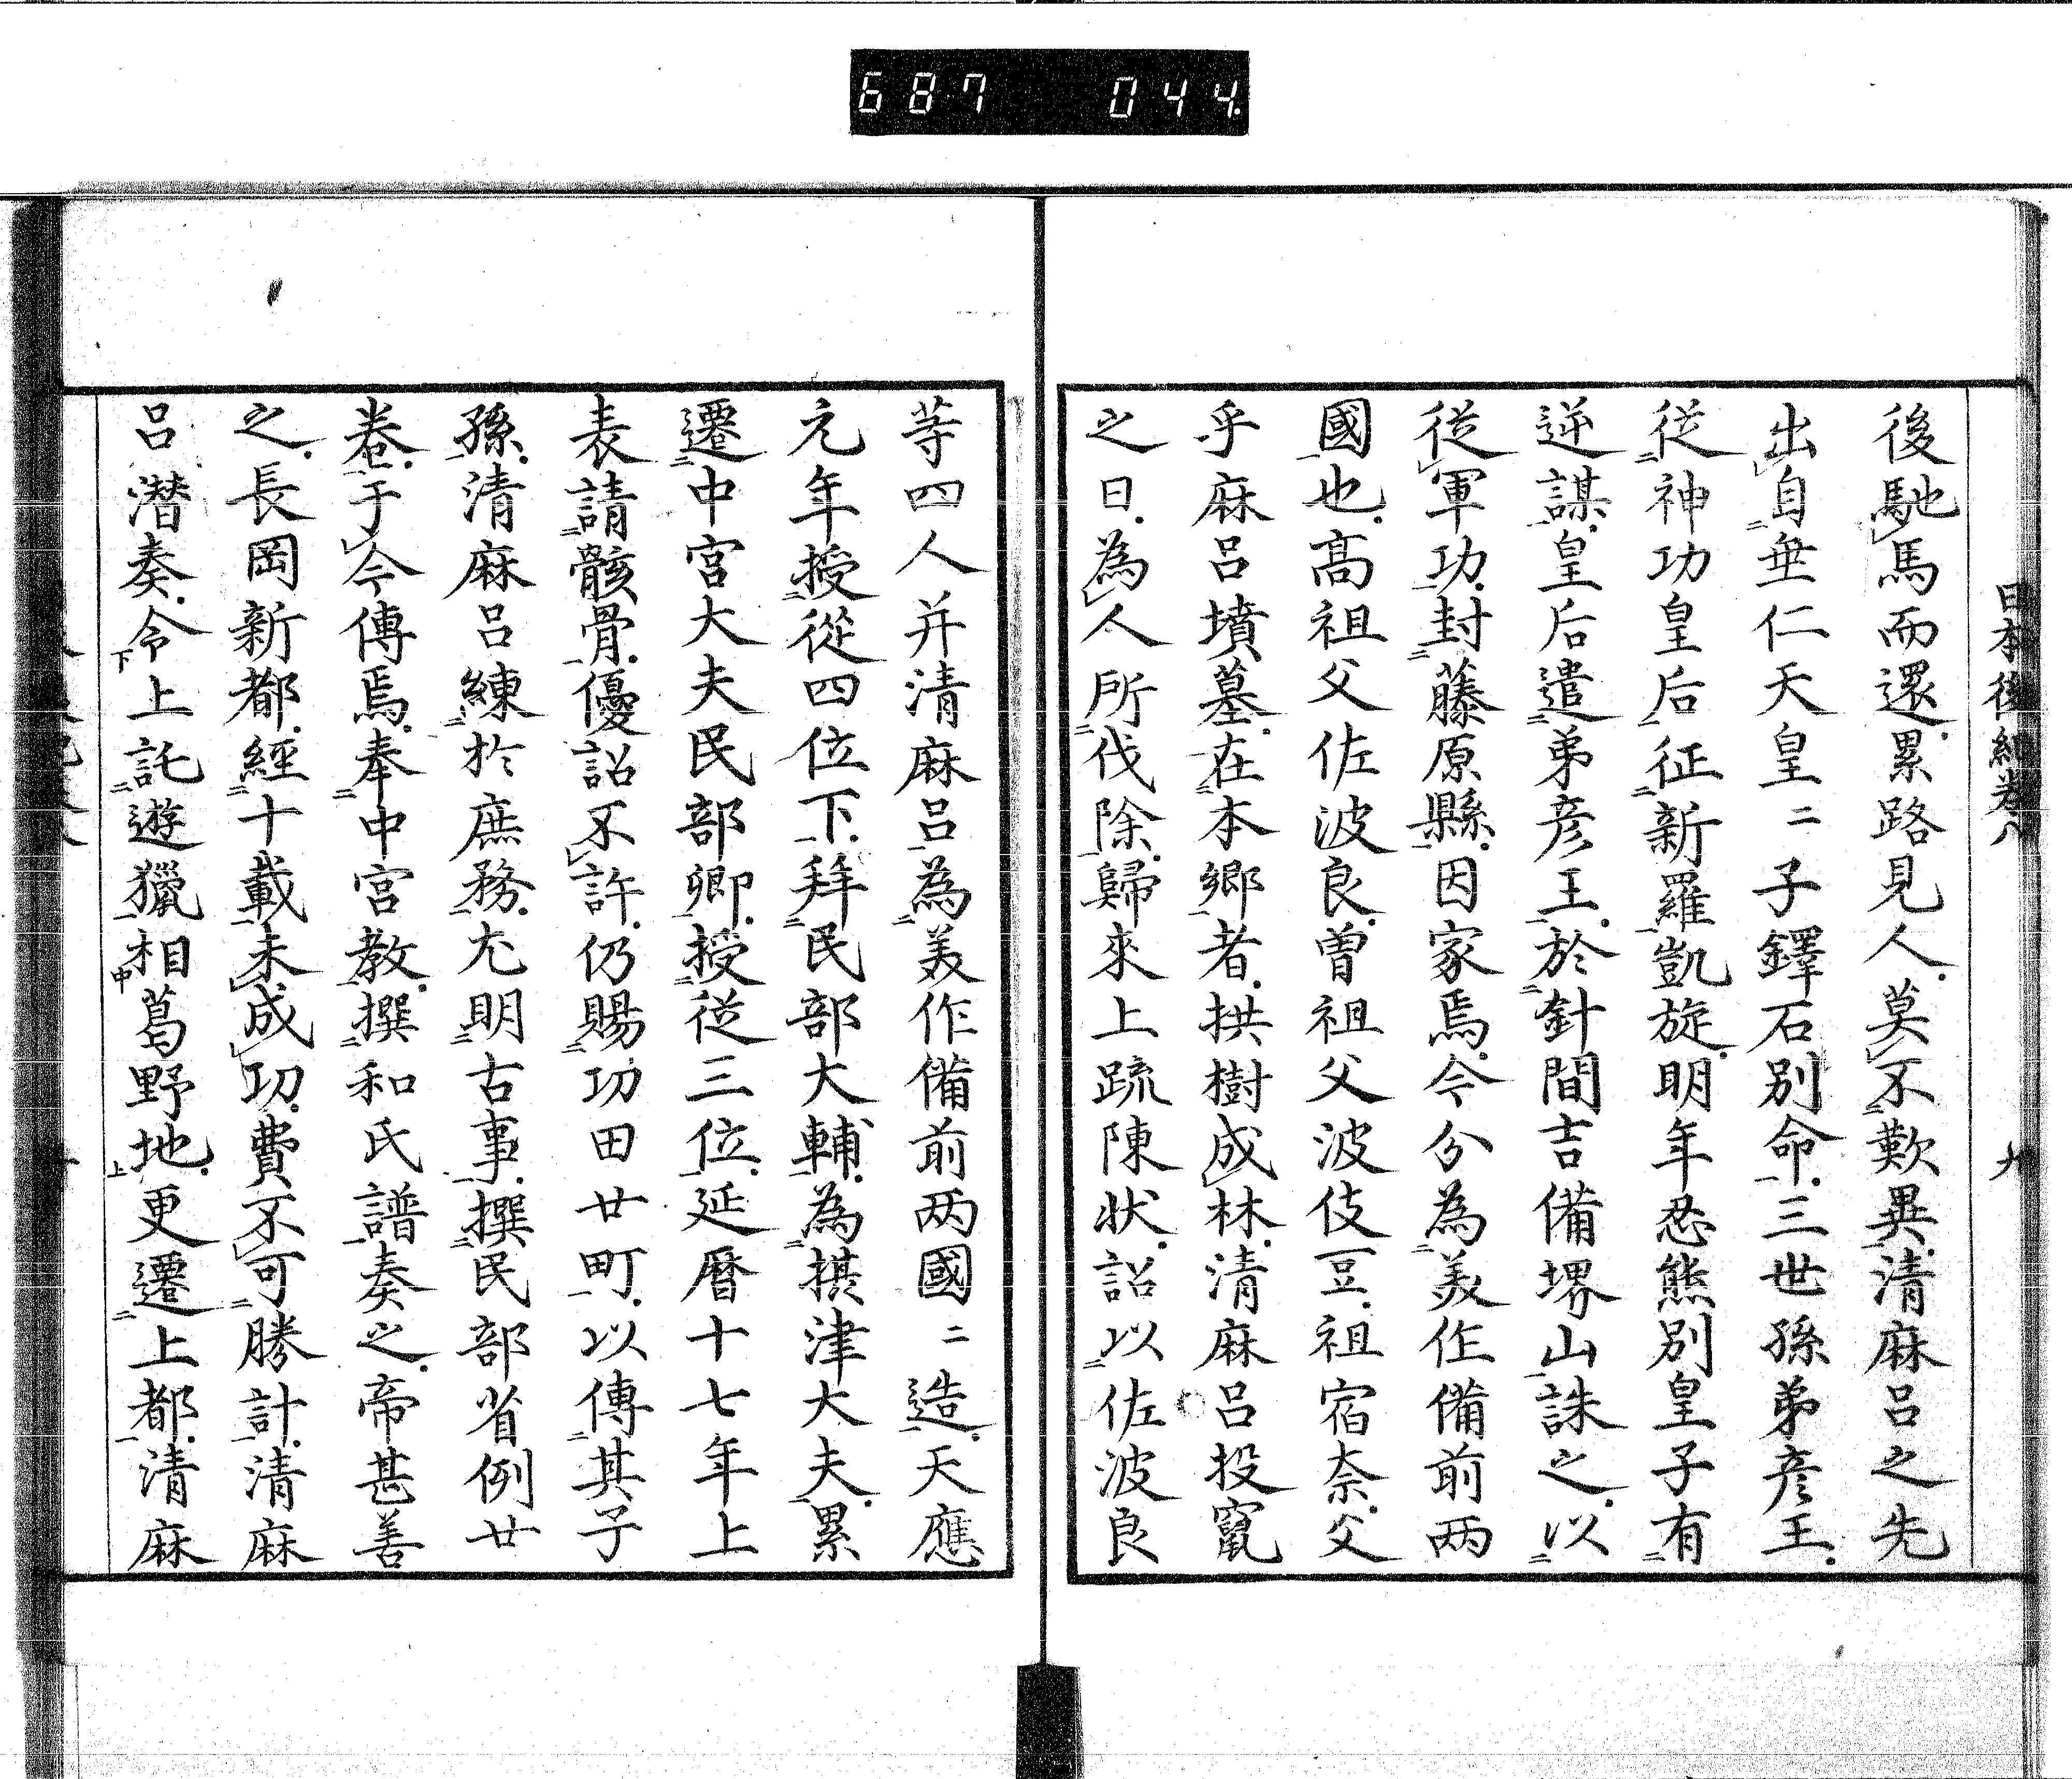 687 044
日本後紀卷八 九
後馳馬而還累路見人莫不歎異清麻呂之先
出自垂仁天皇二子鐸石別命三世孫弟彦王
從神功皇后征新羅凱旋明年忍熊別皇子有
逆謀皇后遣弟彦王於針間吉備堺山誅之以
從軍功封藤原縣因家焉今分為美作備前两
國也高祖父佐波良曽祖父波伎豆祖宿奈父
乎麻呂墳墓在本鄉者拱樹成林清麻呂投竄
之日為人所伐除歸來上疏陳状詔以佐波良
等四人并清麻呂為美作備前两國二造天應
元年授從四位下拜民部大輔為摂津大夫累
遷中宮大夫民部卿授從三位延暦十七年上
表請骸骨優詔不許仍賜功田廿町以傳其子
孫清麻呂練於庶務尤明古事撰民部省例廿
卷于今傳焉奉中宮教撰和氏譜奏之帝甚善
之長岡新都經十載未成功費不可勝計清麻
呂潜奏令上託遊獵相葛野地更遷上都清麻